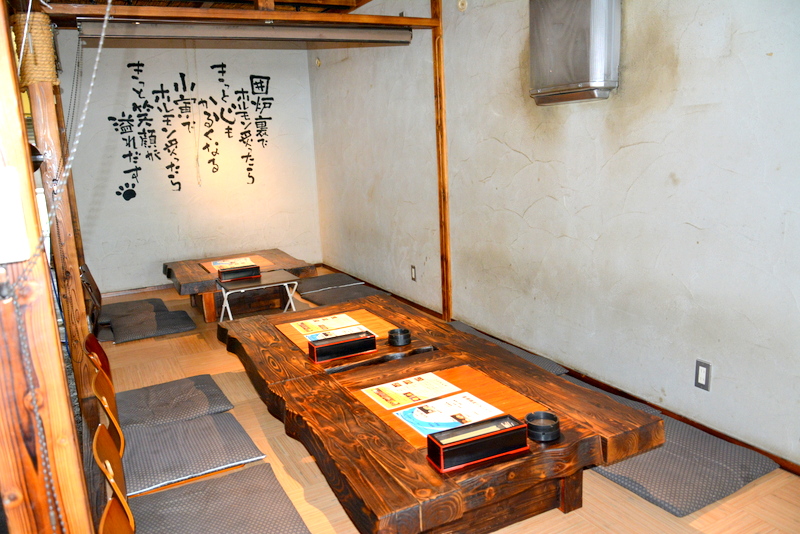 囲炉裏で
ホルモン炙ったら
きっと心も
かるくなる
小寅で
ホルモン炙ったら
きっと笑顔が
溢れだす